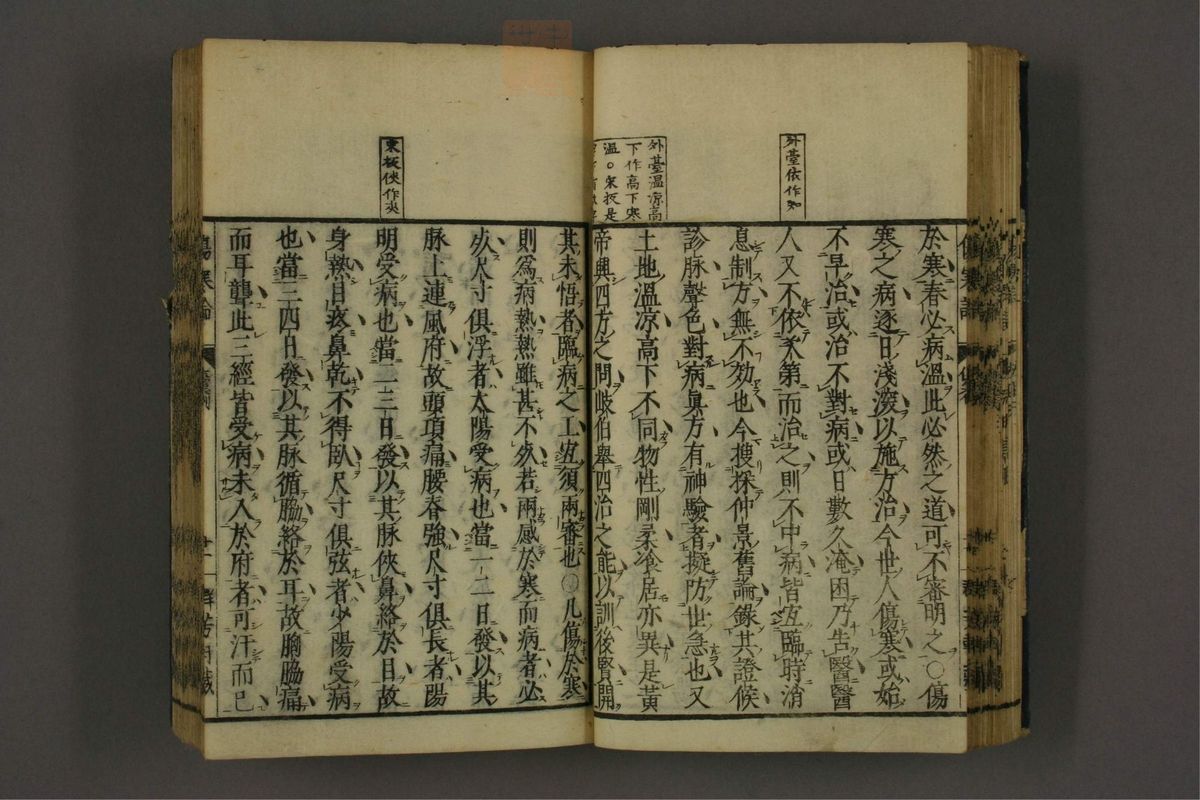 外臺依作知
於寒春必病溫此必然之道可不審明之〇傷
寒之病逐日淺深以施方治今世人傷寒或始
不早治或治不對病或日數久淹困乃告醫醫
人又不依次第而治之則不中病皆宜臨時消
息制方無不効也今搜採仲景舊論錄其證候
診脉聲色對病眞方有神驗者擬防世急也又
外臺溫凉高
下作高下寒
溫〇宋板是
土地溫凉高下不同物性剛柔飡居亦異是黃
帝興四方之問岐伯舉四治之能以訓後賢開
其未悟者臨病之工宜須兩審也〇凡傷於寒
則爲病熱熱雖甚不死若兩感於寒而病者必
死尺寸俱浮者太陽受病也當一二日發以其
脉上連風府故頭項痛腰脊強尺寸俱長者陽
宋板俠作夾
明受病也當二三日發以其脉俠鼻絡於目故
身熱目疼鼻乾不得臥尺寸俱弦者少陽受病
也當三四日發以其脉循脇絡於耳故胸脇痛
而耳聾此三經皆受病未入於府者可汗而已
傷寒論